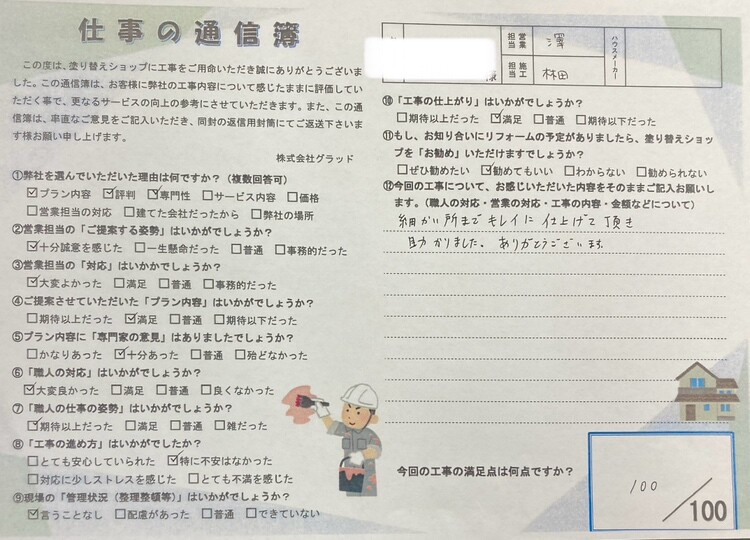 仕事の通信簿
この度は、塗り替えショップに工事をご用命いただき誠にありがとうございま
した。この通信簿は、お客様に弊社の工事内容について感じたままに評価してい
ただく事で、更なるサービスの向上の参考にさせていただきます。また、この通
信簿は、率直なご意見をご記入いただき、同封の返信用封筒にてご返送下さいま
す様お願い申し上げます。
株式会社グラッド
①弊社を選んでいただいた理由は何ですか?(複数回答可)
☑プラン内容 ☑評判 ☑専門性 □サービス内容 □価格
□営業担当の対応 □建てた会社だったから □弊社の場所
②営業担当の「ご提案する姿勢」はいかがでしょうか?
☑十分誠意を感じた □一生懸命だった □普通 □事務的だった
③営業担当の「対応」はいかがでしょうか?
☑大変よかった □満足 □普通 □事務的だった
④ご提案させていただいた「プラン内容」はいかがでしょうか?
□期待以上だった ☑満足 □普通 □期待以下だった
⑤プラン内容に「専門家の意見」はありましたでしょうか?
□かなりあった ☑十分あった □普通 □殆どなかった
⑥「職人の対応」はいかがでしょうか?
☑大変良かった □満足 □普通 □良くなかった
⑦「職人の仕事の姿勢」はいかがでしょうか?
☑期待以上だった □満足 □普通 □雑だった
⑧「工事の進め方」はいかがでしたか?
□とても安心していられた ☑特に不安はなかった
□対応に少しストレスを感じた □とても不満を感じた
⑨現場の「管理状況(整理整頓等)」はいかがでしょうか?
☑言うことなし □配慮があった □普通 □できていない
様
営業担当 澤
施工担当 林田
ハウスメーカー
⑩「工事の仕上がり」はいかがでしょうか?
□期待以上だった ☑満足 □普通 □期待以下だった
⑪もし、お知り合いにリフォームの予定がありましたら、塗り替えショッ
プを「お勧め」いただけますでしょうか?
□ぜひ勧めたい ☑勧めてもいい □わからない □勧められない
⑫今回の工事について、お感じいただいた内容をそのままご記入お願いし
ます。(職人の対応・営業の対応・工事の内容・金額などについて)
細かい所までキレイに仕上げて頂き
助かりました。ありがとうございます。
今回の工事の満足点は何点ですか?
100/100